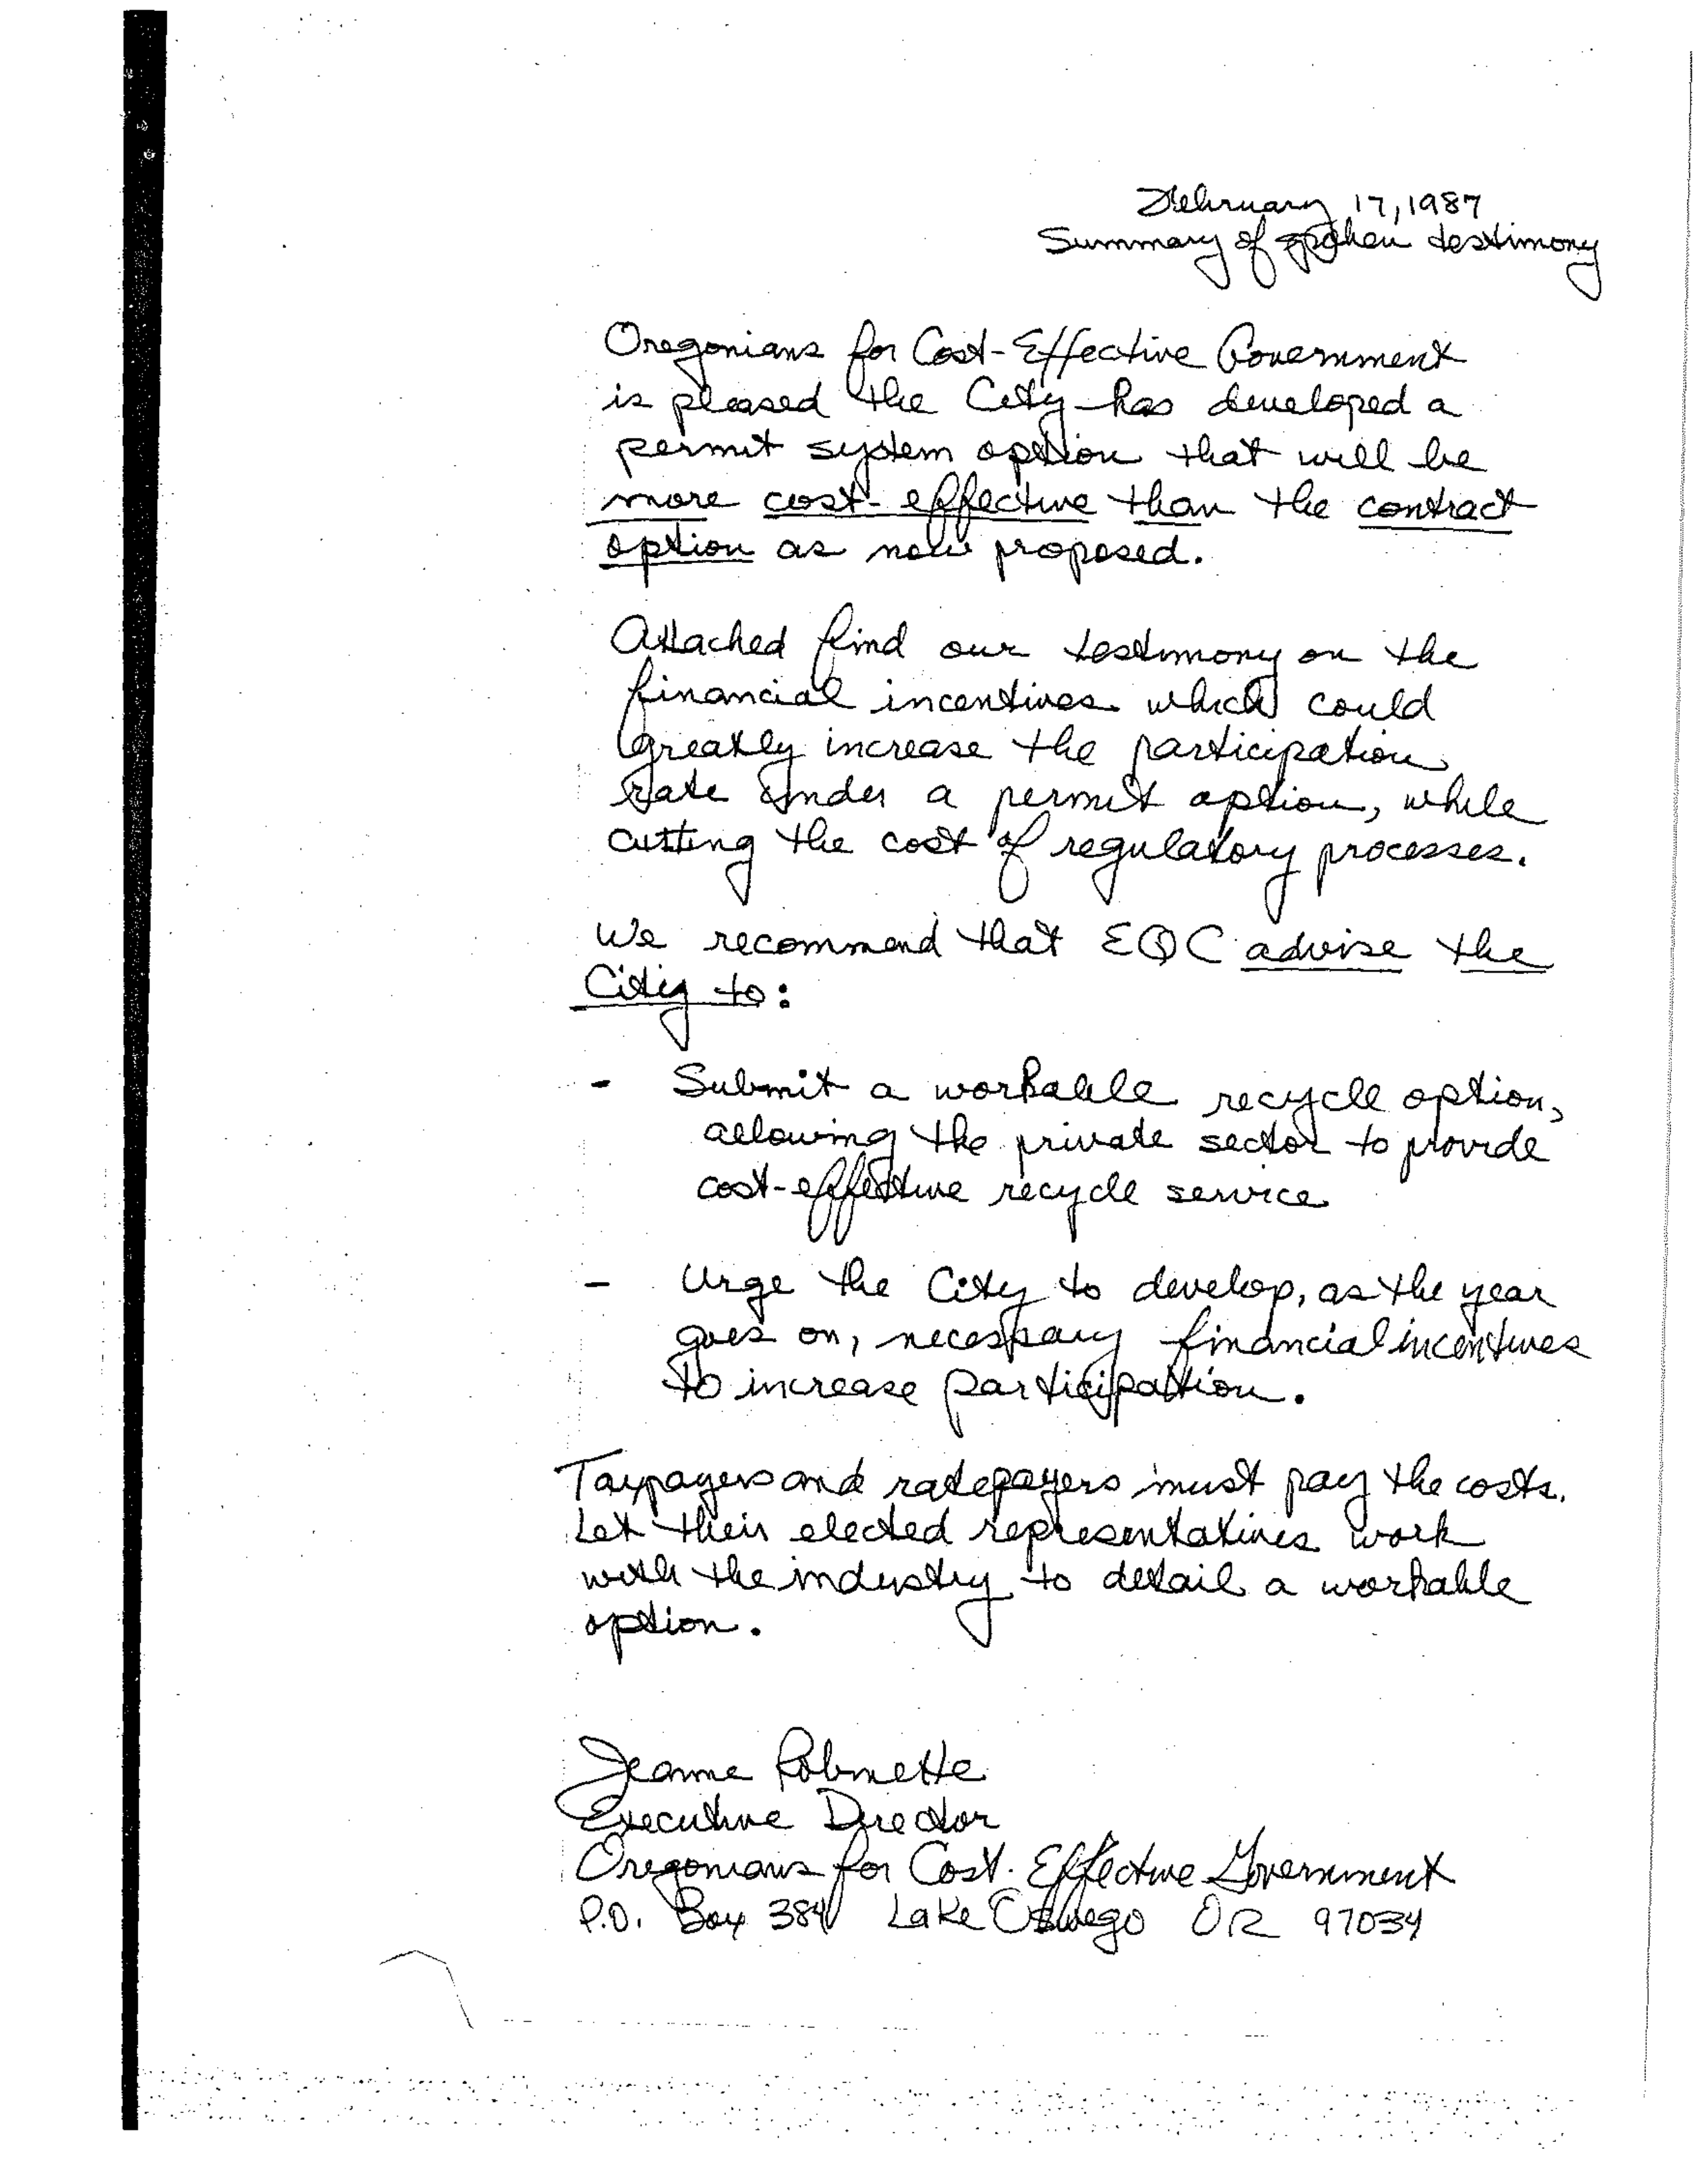 February 17, 1987
Summary of spoken testimony
Oregonians for Cost-Effective Government
is pleased the City has developed a
permit system option that will be
more cost-effective than the contract
option as now proposed.
Attached find our testimony on the
financial incentives which could
greatly increase the participation
rate under a permit option, while
cutting the cost of regulatory processes.
We recommend that EQC advise the
City to:
- Submit a workable recycle option,
allowing the private sector to provide
cost-effective recycle service
- Urge the City to develop, as the year
goes on, necessary financial incentives
to increase participation.
Taxpayers and ratepayers must pay the costs.
Let their elected representatives work
with the industry to detail a workable
option.
Jeanne Robinette
Executive Director
Oregonians for Cost-Effective Government
P.O. Box 384 Lake Oswego OR 97034